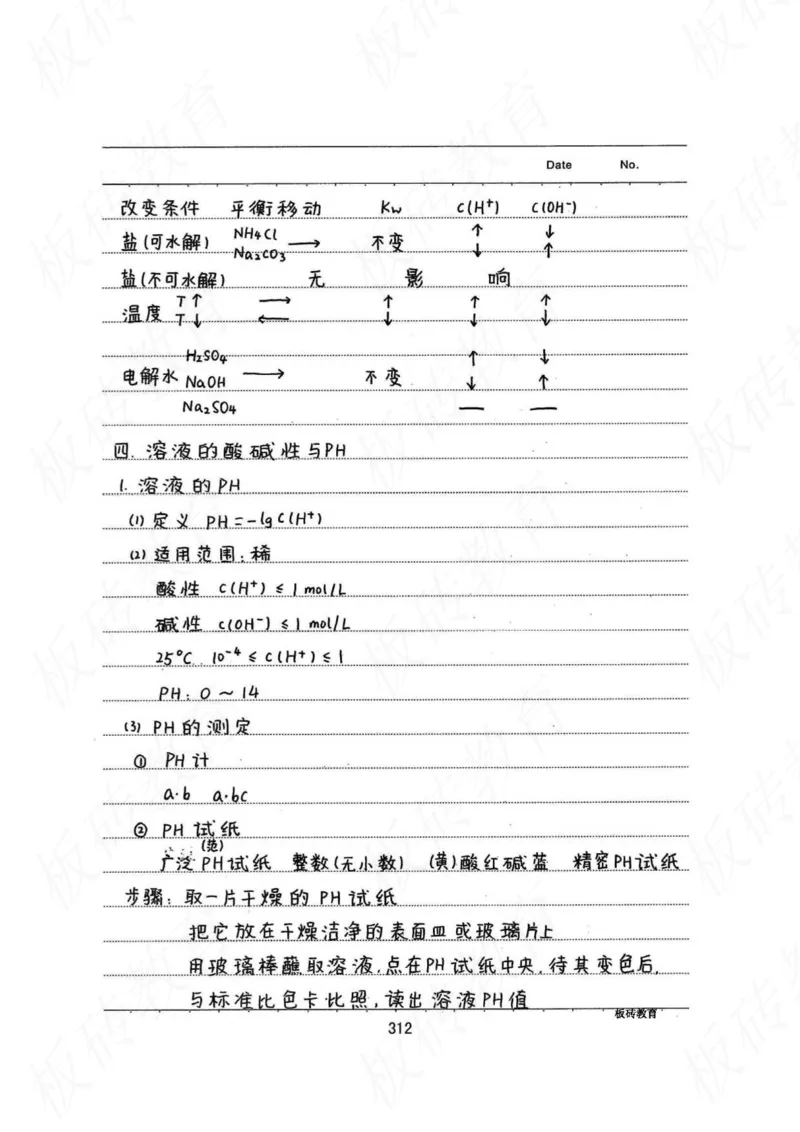 Date No.
改变条件 平衡移动 Kw c(H⁺) c(OH⁻)
盐(可水解) NH₄Cl → 不变 ↑ ↓
Na₂CO₃ ↓ ↑
盐(不可水解) 无 影 响
温度 T↑ → ↑ ↑ ↑
T↓ ← ↓ ↓ ↓
H₂SO₄ ↑ ↓
电解水 NaOH → 不变 ↓ ↑
Na₂SO₄ — —
四. 溶液的酸碱性与PH
1. 溶液的PH
(1) 定义 PH=-lgc(H⁺)
(2) 适用范围:稀
酸性 c(H⁺)≤1mol/L
碱性 c(OH⁻)≤1mol/L
25℃. 10⁻⁴≤c(H⁺)≤1
PH:0~14
(3) PH的测定
① PH计
a.b a.bc
② PH试纸
(范)
广泛PH试纸 整数(无小数) (黄)酸红碱蓝 精密PH试纸
步骤:取一片干燥的PH试纸
把它放在干燥洁净的表面皿或玻璃片上
用玻璃棒蘸取溶液,点在PH试纸中央,待其变色后,
与标准比色卡比照,读出溶液PH值
板砖教育
312